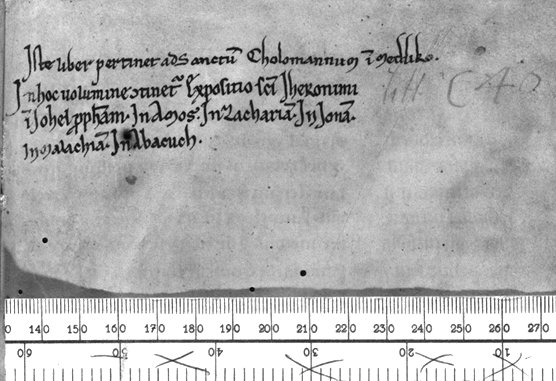 Iste liber pertinet ad Sanctū Cholomannum ī Medliko.
In hoc uolumine ↄtinet᷑ Expositio sc̄i Iheronimi
ī Iohel ꝓph̄am. In Amos. In Zachariā. In Ionā.
In Malachiā. In Abacuch.
0 140 150 160 170 180 190 200 210 220 230 240 250 260 270
60 50 40 30 20 10